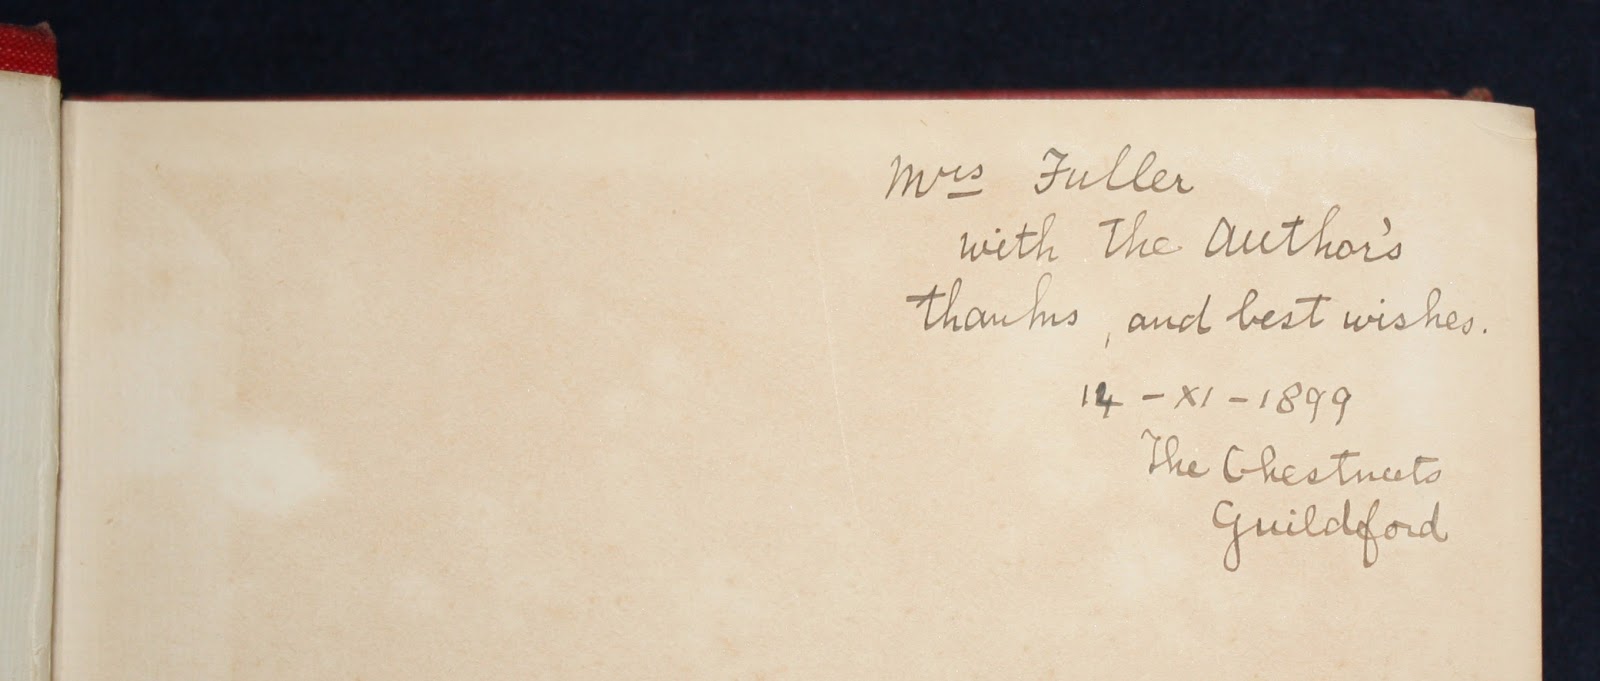 Mrs Fuller
with the Author's
thanks, and best wishes.
14 - XI - 1899
The Chestnuts
Guildford